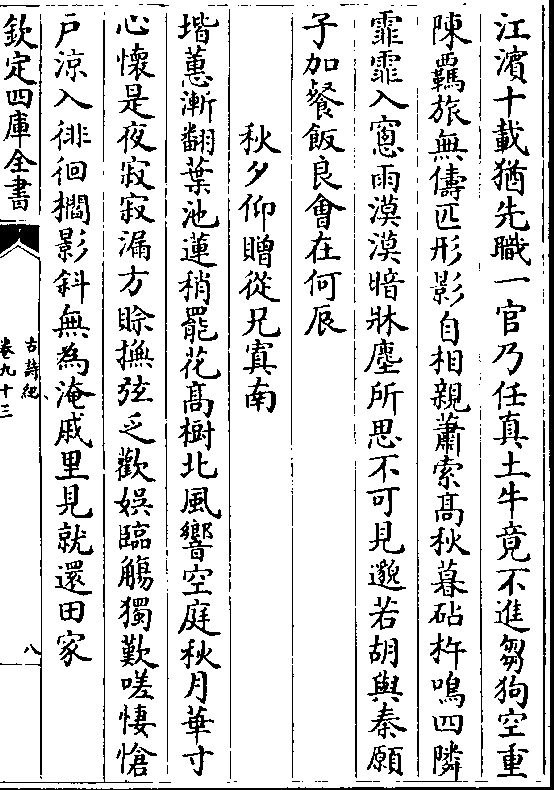 江濱十載猶先職一官乃任真土牛竟不進芻狗空重
陳羈旅無儔匹形影自相親蕭索髙秋暮砧杵鳴四隣
霏霏入窻雨漠漠暗牀塵所思不可見邈若胡與秦願
子加餐飯良會在何辰
秋夕仰贈從兄寘南
堦蕙漸翻葉池蓮稍罷花髙樹北風響空庭秋月華寸
心懷是夜寂寂漏方賖撫弦乏歡娯臨觴獨歎嗟悽愴
戸涼入徘徊櫩影斜無為淹戚里見就還田家
欽定四庫全書
古詩紀
卷九十三
八